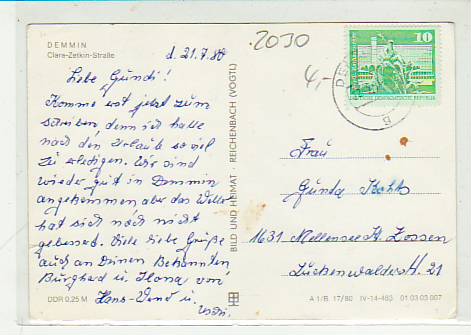 DEMMIN
Clara-Zetkin-Straße
d. 21.7.80
Liebe Gundi!
Komme erst jetzt zum
schreiben, denn ich hatte
nach den Urlaub so viel
zu erledigen. Wir sind
wieder gut in Demmin
angekommen aber das Wetter
hat sich noch nicht
gebessert. Viele liebe Grüße
auch an Deinen Bekannten
Burghard u. Ilona von
Hans-
DDR 0,25 M
BILD UND HEIMAT REICHENBACH (VOGTL)
2030
4,-
10
DEUTSCHE DEMOKRATISCHE REPUBLIK
Frau
Gunda
1631 Mellensee Kr. Zossen
Luckenwalderstr. 21
A 1/B 17/80 IV-14-483 01 03 03 007